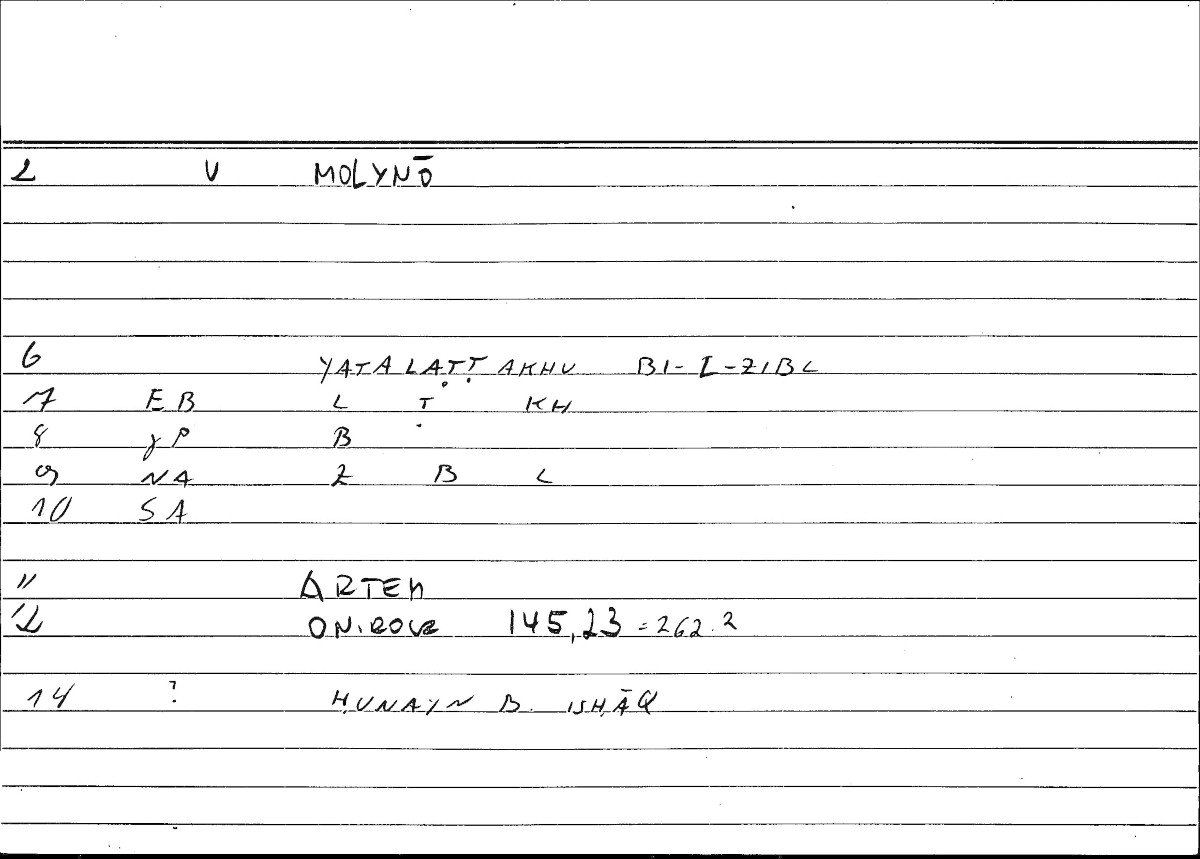 2 V MOLYNŌ
6 YATALAṬṬAKHU BI-L-ZIBL
7 EB L Ṭ KH
8 γP B
9 NA Z B L
10 SA
11 ARTEM
12 ONIROCR 145,23 = 262.2
14 ? ḤUNAYN B. ISḤĀQ